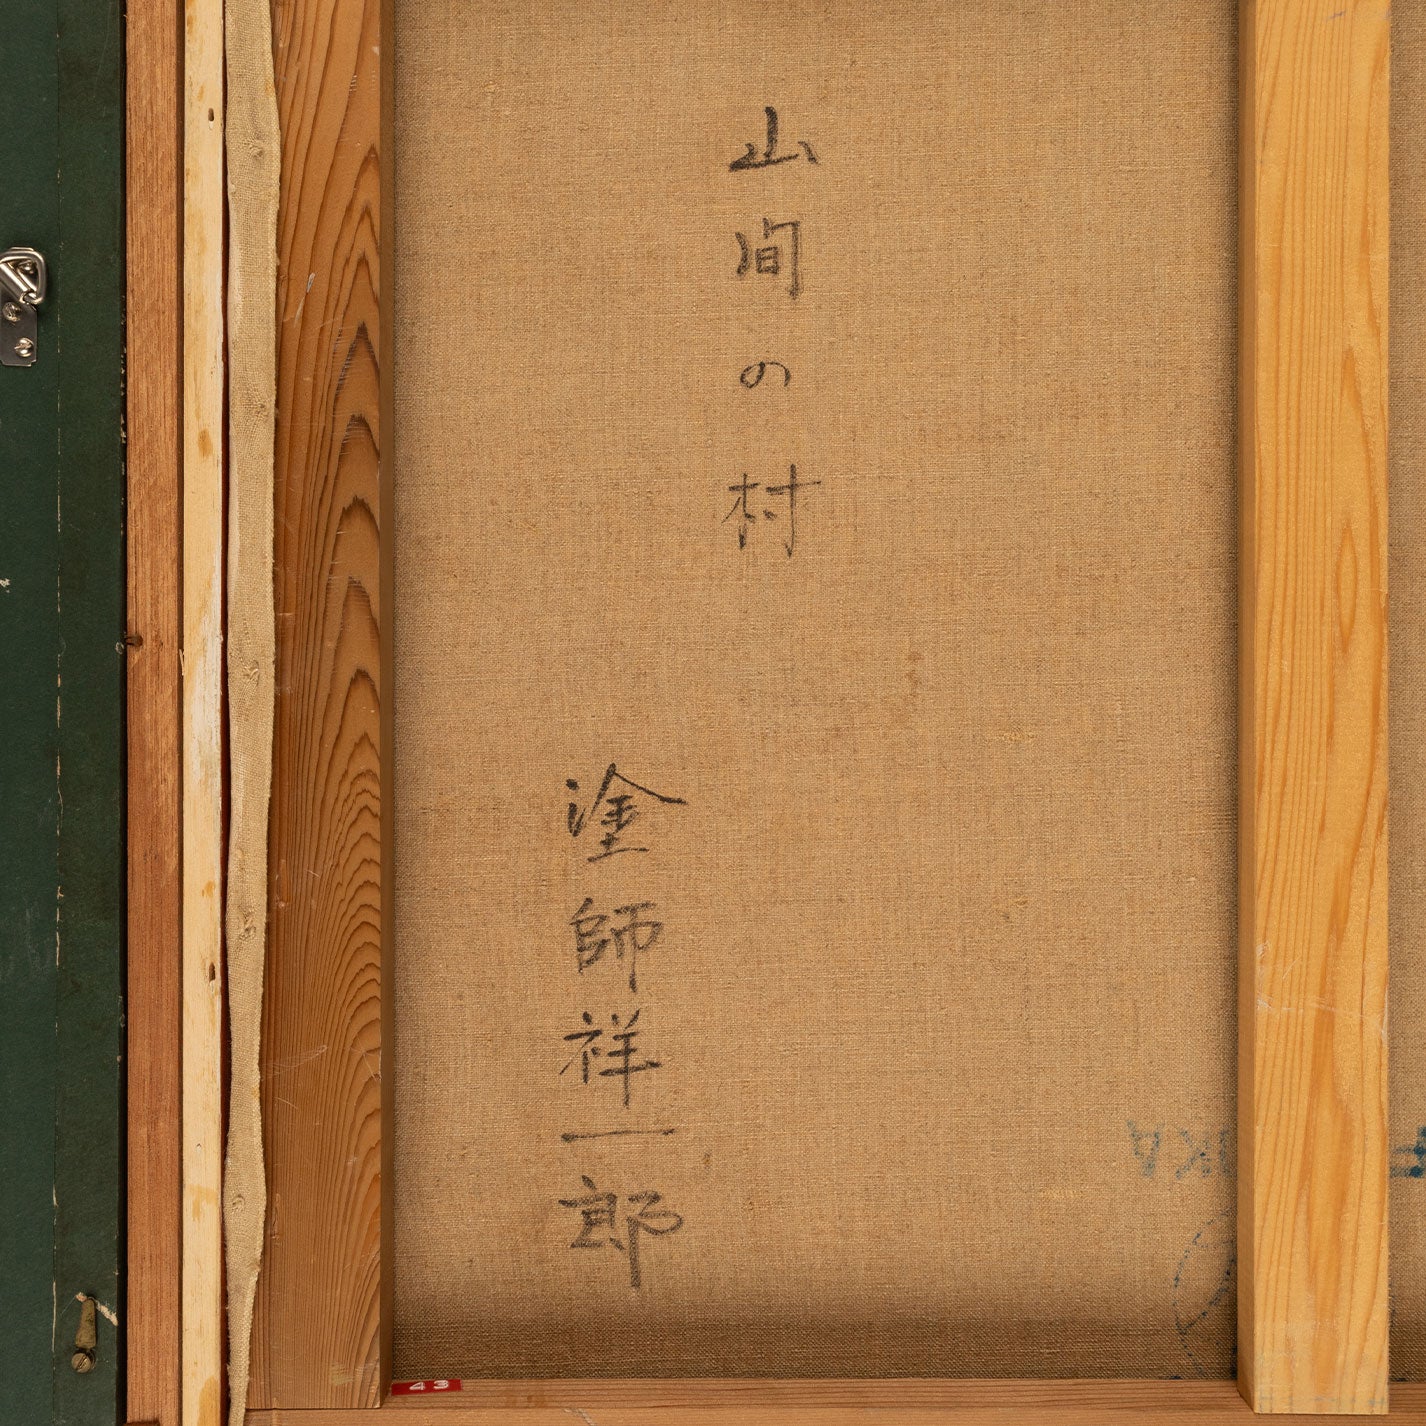 山間の村
塗師祥一郎
43